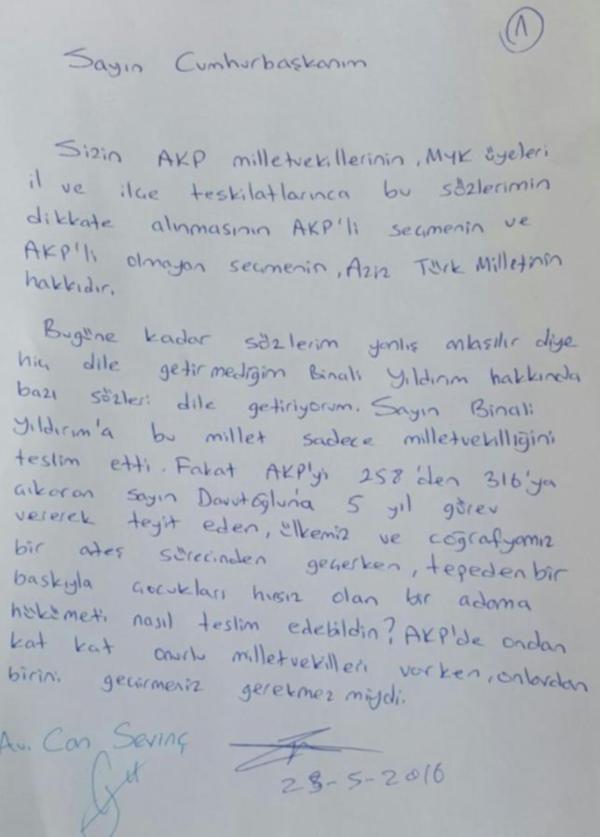 1
Sayın Cumhurbaşkanım
Sizin AKP milletvekillerinin, MYK üyeleri
il ve ilçe teskilatlarınca bu sözlerimin
dikkate alınmasının AKP'li seçmenin ve
AKP'li olmayan seçmenin, Aziz Türk Milletinin
hakkıdır.
Bugüne kadar sözlerim yanlış anlaşılır diye
hiç dile getirmediğim Binali Yıldırım hakkında
bazı sözleri dile getiriyorum. Sayın Binali
Yıldırım'a bu millet sadece milletvekilliğini
teslim etti. Fakat AKP'yi 258'den 316'ya
çıkaran sayın Davutoğluna 5 yıl görev
vererek teyit eden, ülkemiz ve coğrafyamız
bir ateş sürecinden geçerken, tepeden bir
baskıyla çocukları hırsız olan bir adama
hükümeti nasıl teslim edebildin? AKP'de ondan
kat kat onurlu milletvekilleri varken, onlardan
birini geçirmeniz gerekmez miydi.
Av. Can Sevinç
28-5-2016